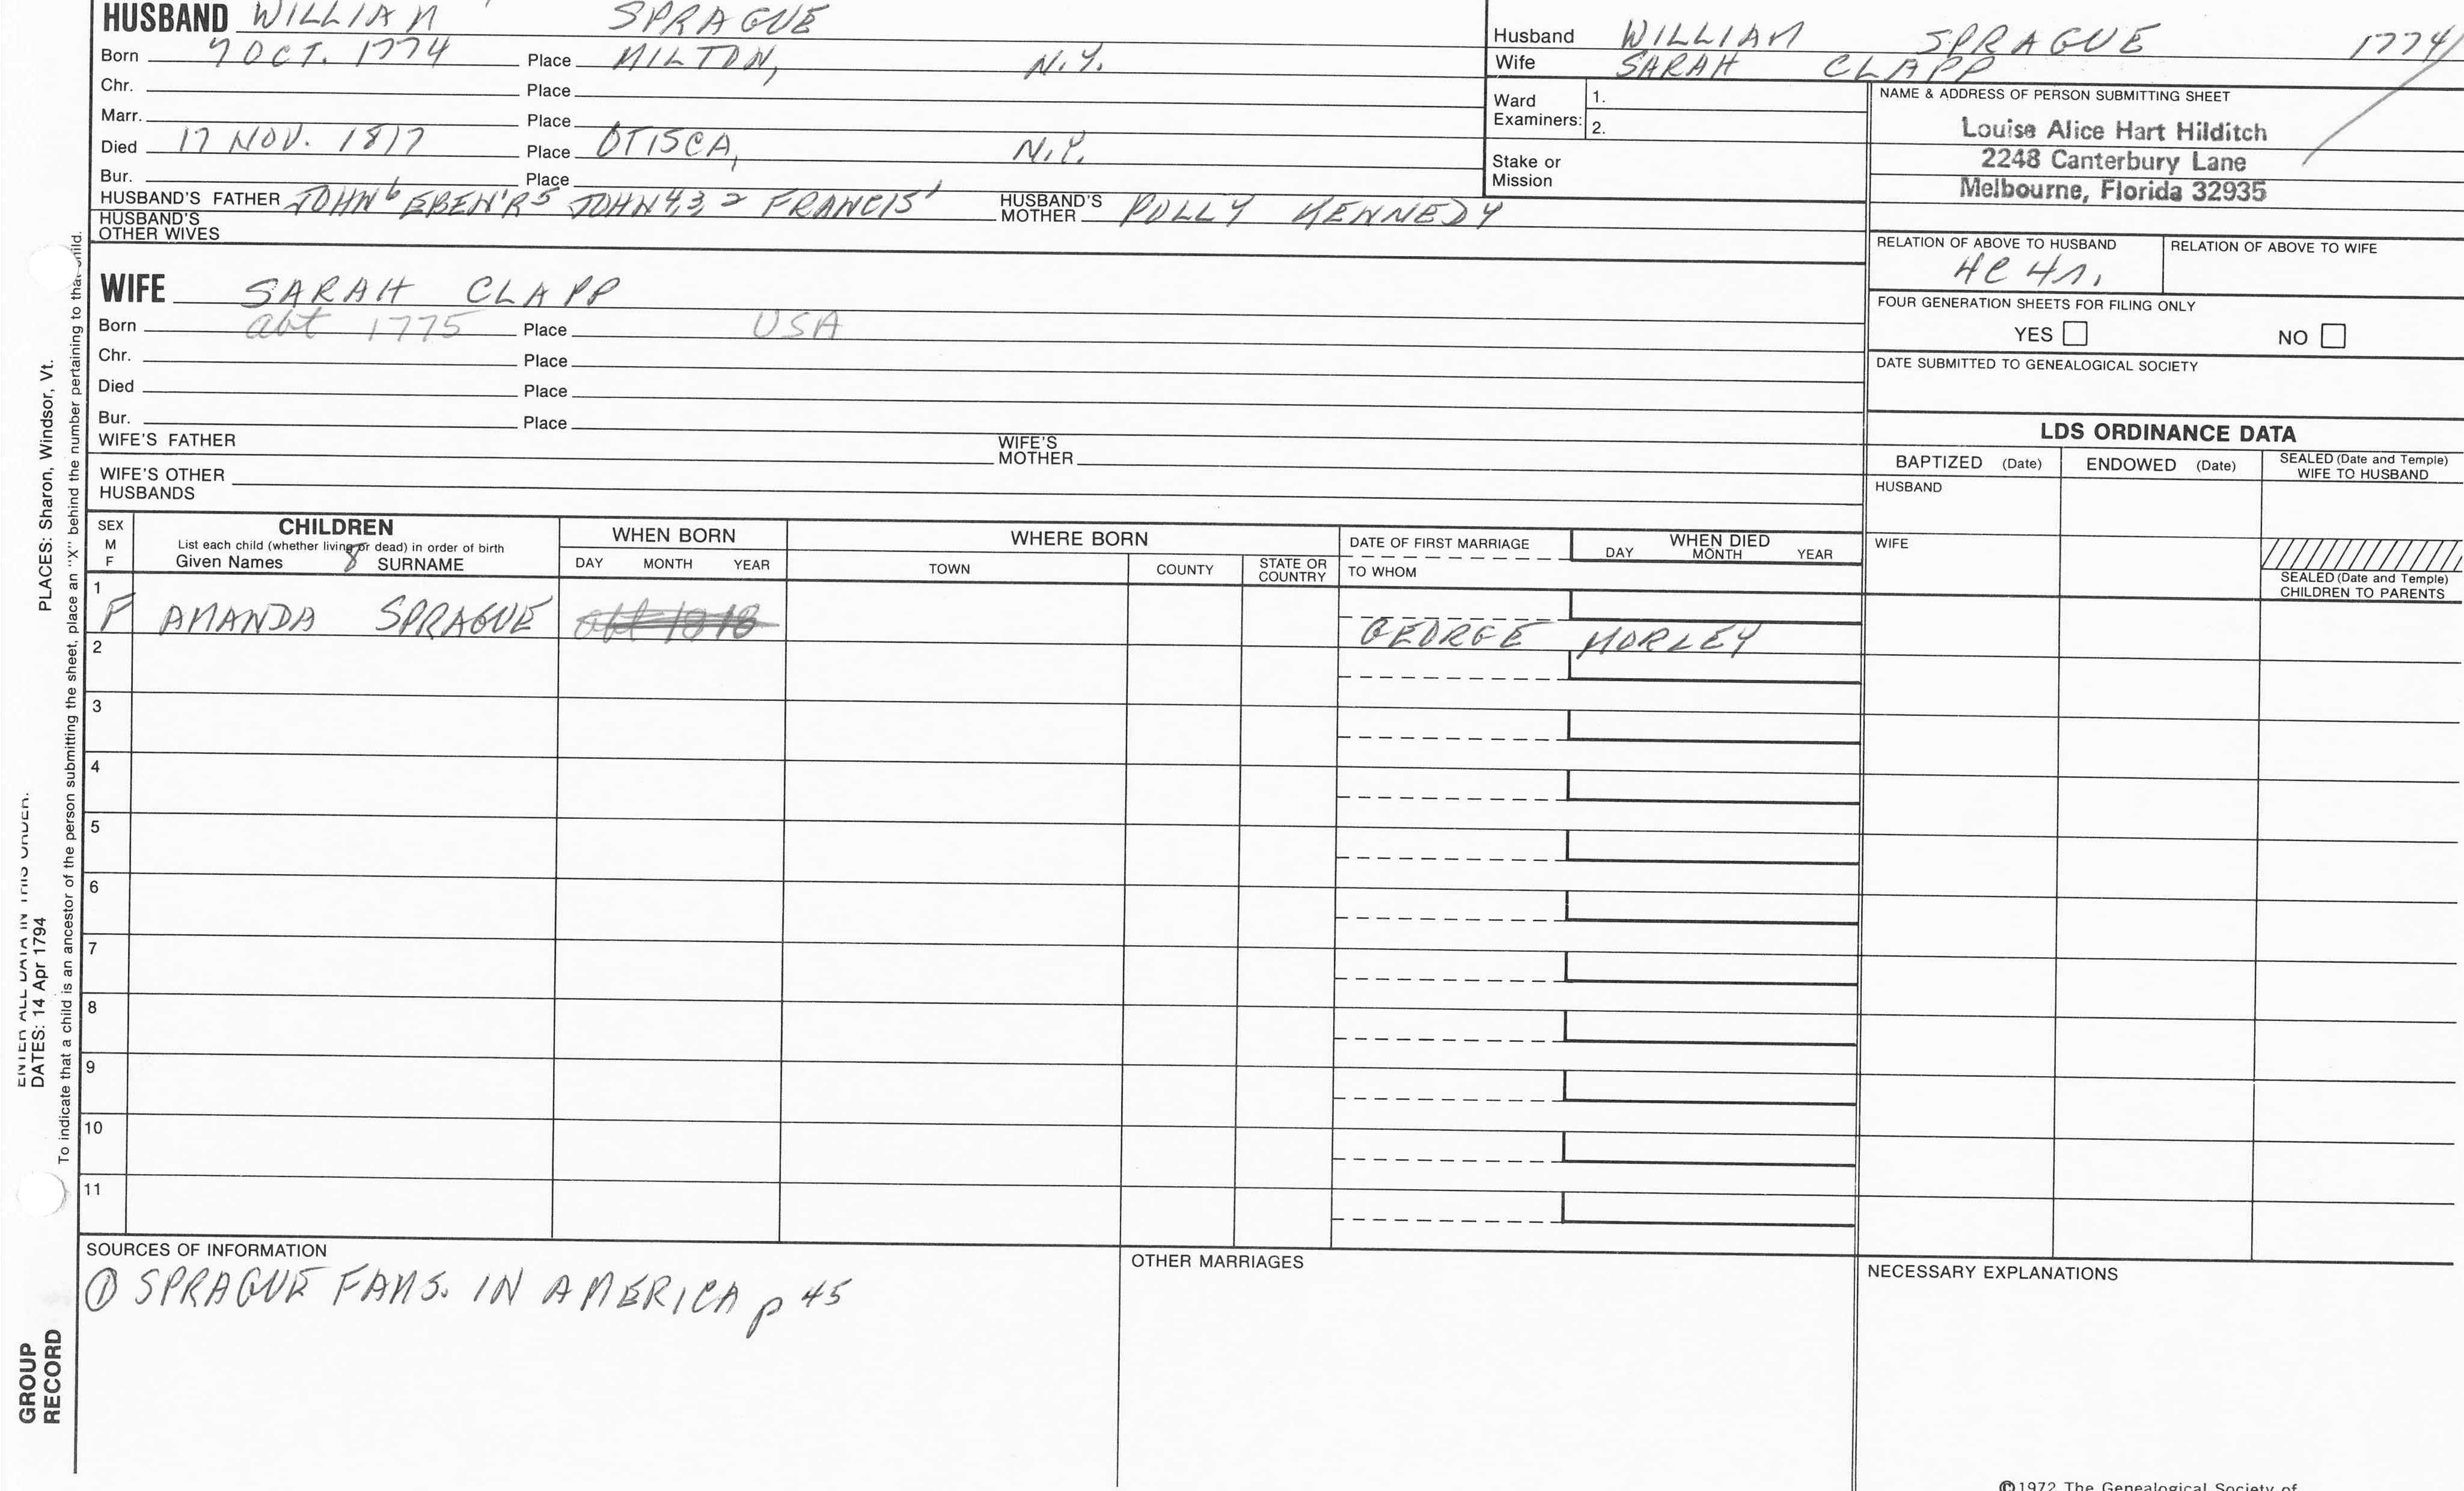 HUSBAND WILLIAM SPRAGUE
Born 7 OCT. 1774 Place MILTON, N.Y.
Chr. Place
Marr. Place
Died 17 NOV. 1817 Place OTISCA, N.Y.
Bur. Place
HUSBAND'S FATHER JOHN⁶ EBEN'R⁵ JOHN⁴,³,² FRANCIS¹ HUSBAND'S MOTHER POLLY KENNEDY
HUSBAND'S OTHER WIVES
WIFE SARAH CLAPP
Born abt 1775 Place USA
Chr. Place
Died Place
Bur. Place
WIFE'S FATHER WIFE'S MOTHER
WIFE'S OTHER HUSBANDS
Husband WILLIAM SPRAGUE 1774
Wife SARAH CLAPP
Ward Examiners: 1.
2.
Stake or Mission
NAME & ADDRESS OF PERSON SUBMITTING SHEET
Louise Alice Hart Hilditch
2248 Canterbury Lane
Melbourne, Florida 32935
RELATION OF ABOVE TO HUSBAND RELATION OF ABOVE TO WIFE
4C 4r.
FOUR GENERATION SHEETS FOR FILING ONLY
YES NO
DATE SUBMITTED TO GENEALOGICAL SOCIETY
LDS ORDINANCE DATA
BAPTIZED (Date) ENDOWED (Date) SEALED (Date and Temple) WIFE TO HUSBAND
HUSBAND
WIFE
SEALED (Date and Temple)
CHILDREN TO PARENTS
SEX M F
CHILDREN
List each child (whether living or dead) in order of birth
Given Names 8 SURNAME
WHEN BORN
DAY MONTH YEAR
WHERE BORN
TOWN COUNTY STATE OR COUNTRY
DATE OF FIRST MARRIAGE
TO WHOM
WHEN DIED
DAY MONTH YEAR
1
F AMANDA SPRAGUE abt 1818 GEORGE MORLEY
2
3
4
5
6
7
8
9
10
11
SOURCES OF INFORMATION
① SPRAGUE FAMS. IN AMERICA p 45
OTHER MARRIAGES
NECESSARY EXPLANATIONS
©1972 The Genealogical Society of
ENTER ALL DATA IN THIS ORDER.
DATES: 14 Apr 1794 PLACES: Sharon, Windsor, Vt.
To indicate that a child is an ancestor of the person submitting the sheet, place an "X" behind the number pertaining to that child.
GROUP
RECORD